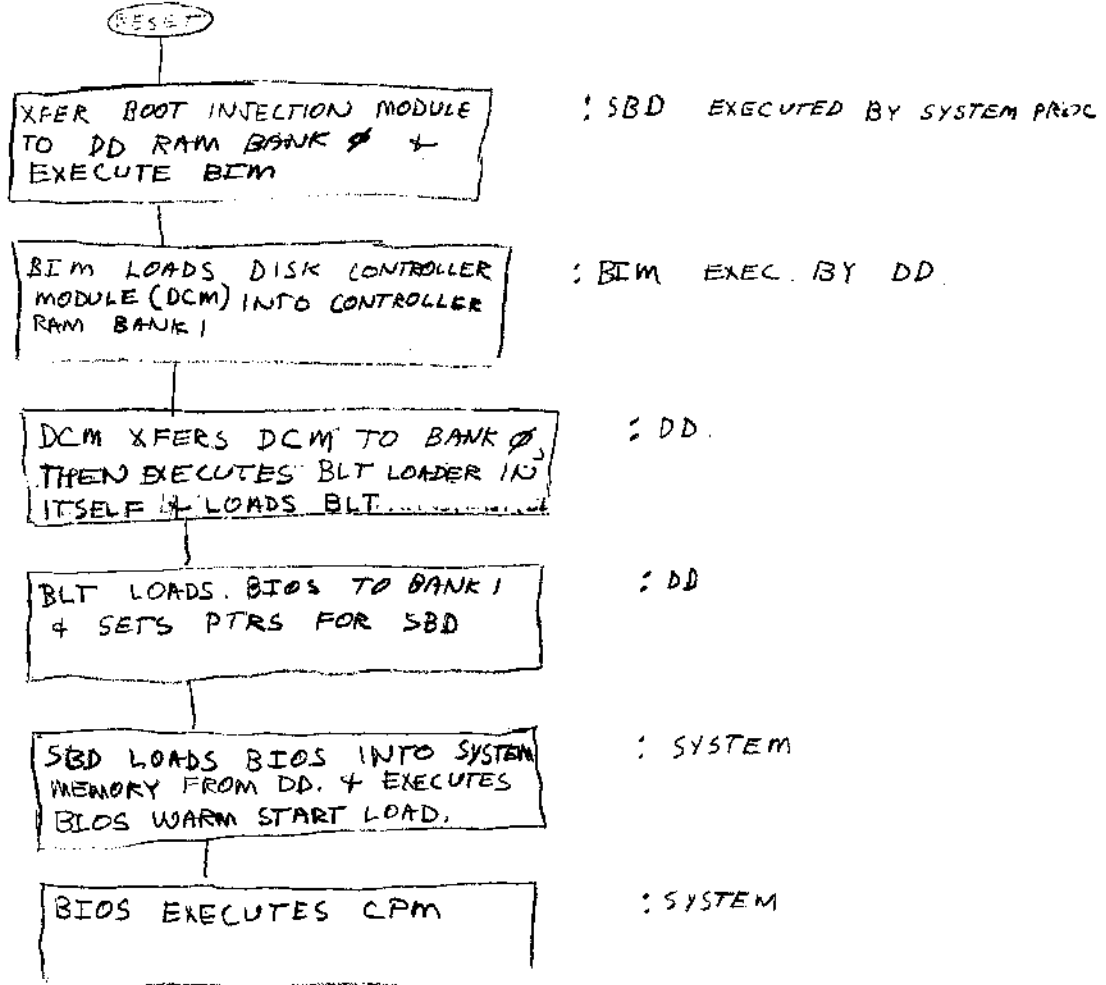 RESET
XFER BOOT INJECTION MODULE
TO DD RAM BANK Ø &
EXECUTE BIM
: SBD EXECUTED BY SYSTEM PROC
BIM LOADS DISK CONTROLLER
MODULE (DCM) INTO CONTROLLER
RAM BANK 1
: BIM EXEC. BY DD.
DCM XFERS DCM TO BANK Ø,
THEN EXECUTES BLT LOADER IN
ITSELF & LOADS BLT
: DD.
BLT LOADS BIOS TO BANK 1
& SETS PTRS FOR SBD
: DD
SBD LOADS BIOS INTO SYSTEM
MEMORY FROM DD. & EXECUTES
BIOS WARM START LOAD.
: SYSTEM
BIOS EXECUTES CPM
: SYSTEM